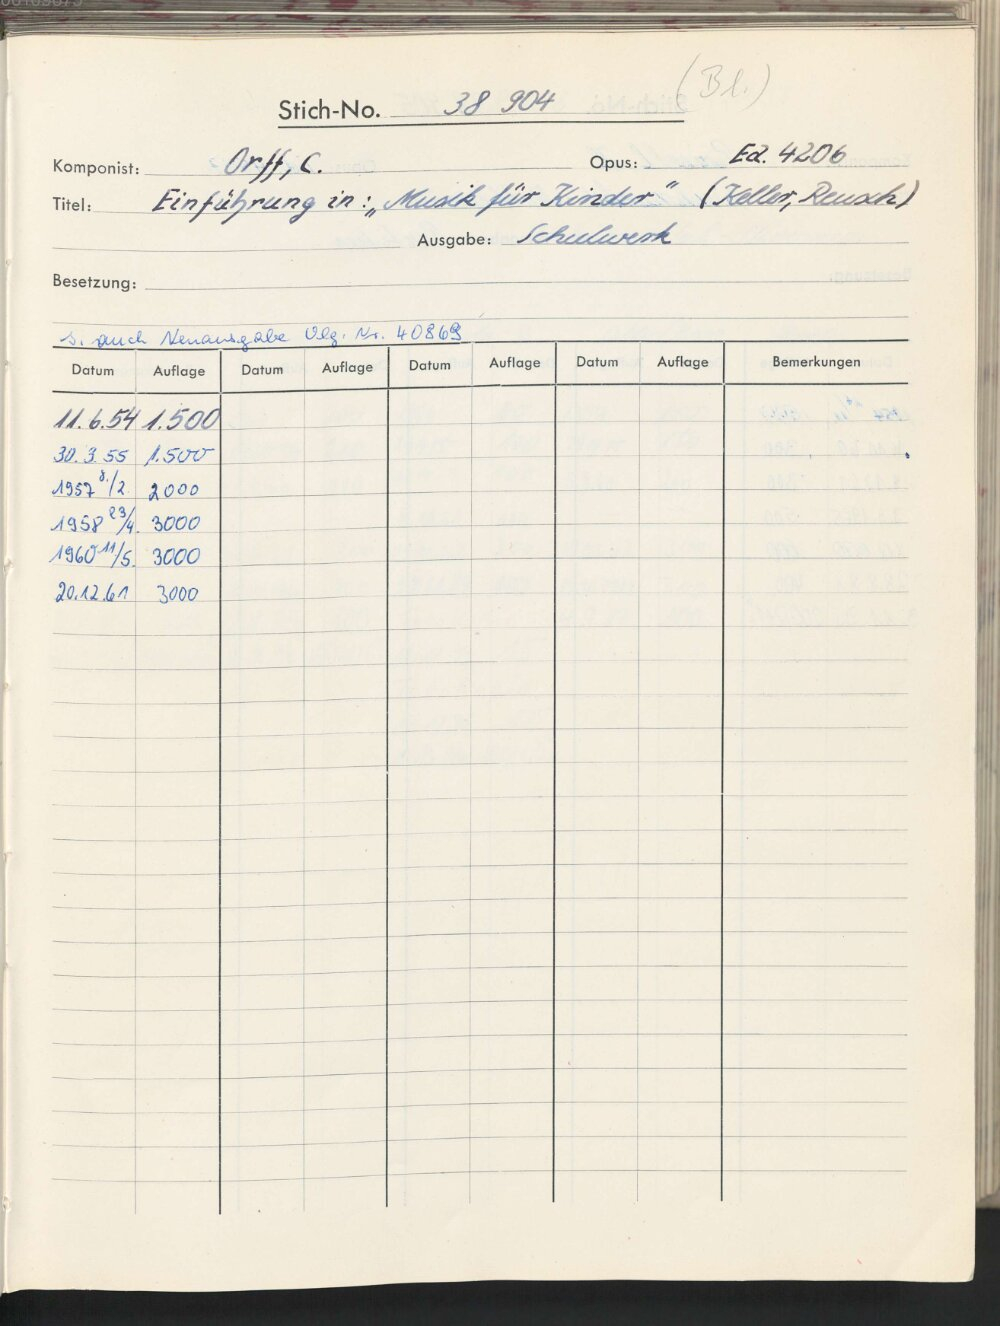 (Bl.)
Stich-No. 38 904
Komponist: Orff, C. Opus: Ed. 4206
Titel: Einführung in: „Musik für Kinder" (Keller, Reusch)
Ausgabe: Schulwerk
Besetzung:
s. auch Neuausgabe Vlg. Nr. 40869
Datum Auflage Datum Auflage Datum Auflage Datum Auflage Bemerkungen
11.6.54 1.500
30.3.55 1.500
1957 8./2. 2000
1958 23/4. 3000
1960 11/5. 3000
20.12.61 3000